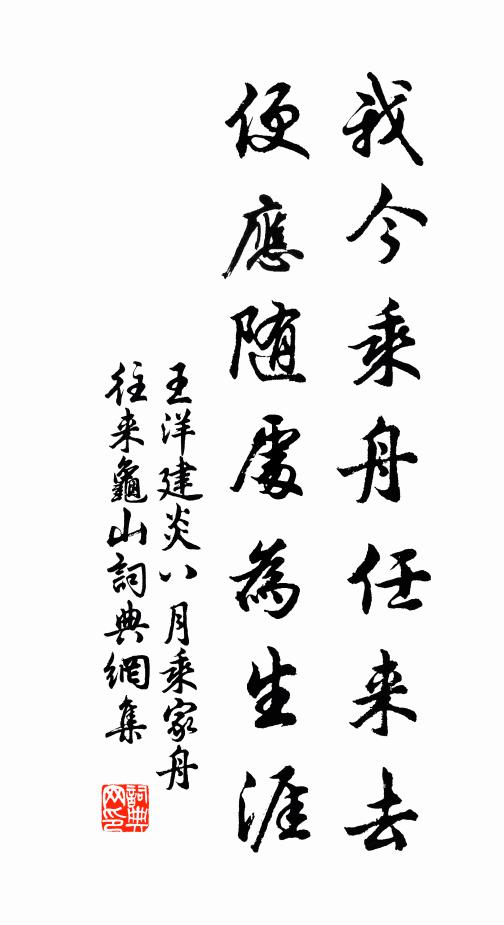 我今乘舟任来去
便應随處為生涯
王洋建炎八月乘家舟
往来龜山詞典網集
詞典
网印